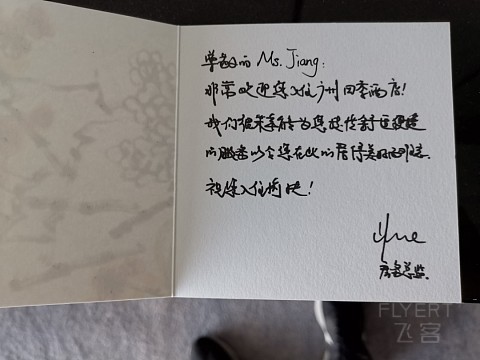 尊敬的 Ms. Jiang:
非常欢迎您入住广州四季酒店!
我们很荣幸能为您提供舒适便捷
的服务以令您在此的居停美好而难忘.
祝您入住愉快!
June
房务总监.
FLYERT
飞客